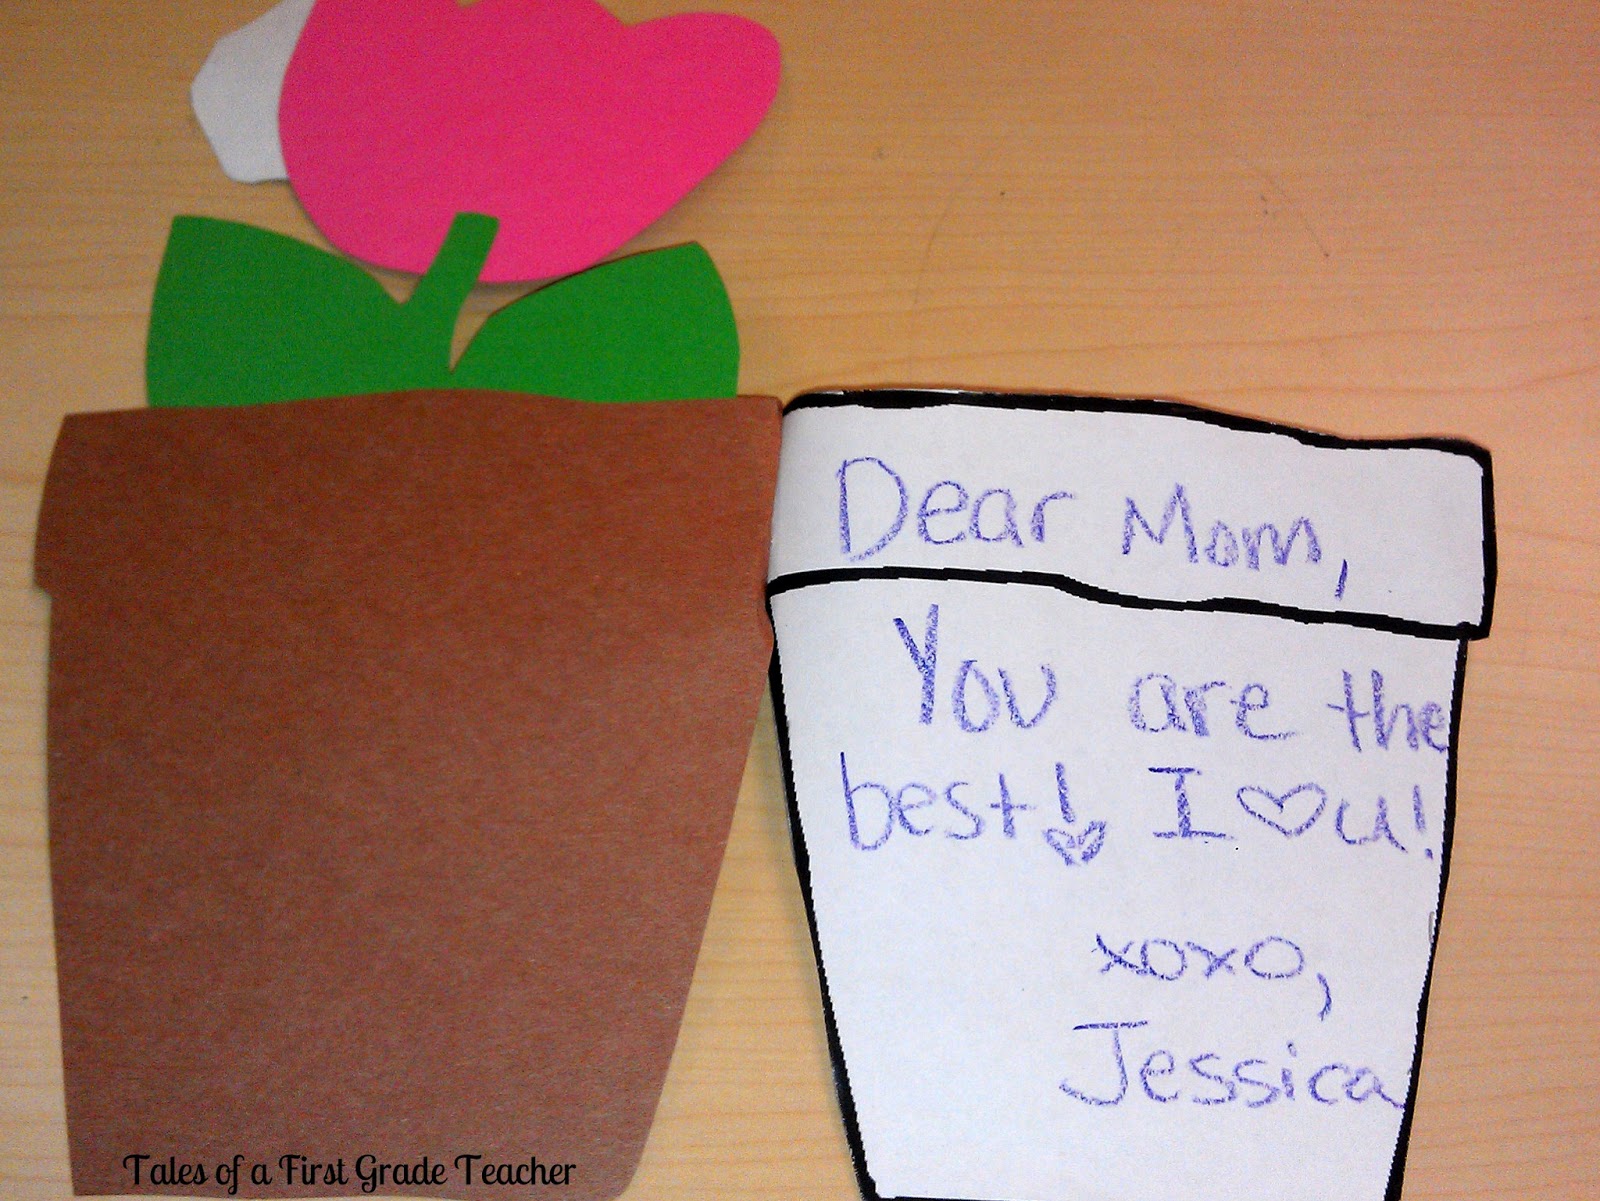 Dear Mom,
You are the
best! I ♡ u!
xoxo,
Jessica
Tales of a First Grade Teacher